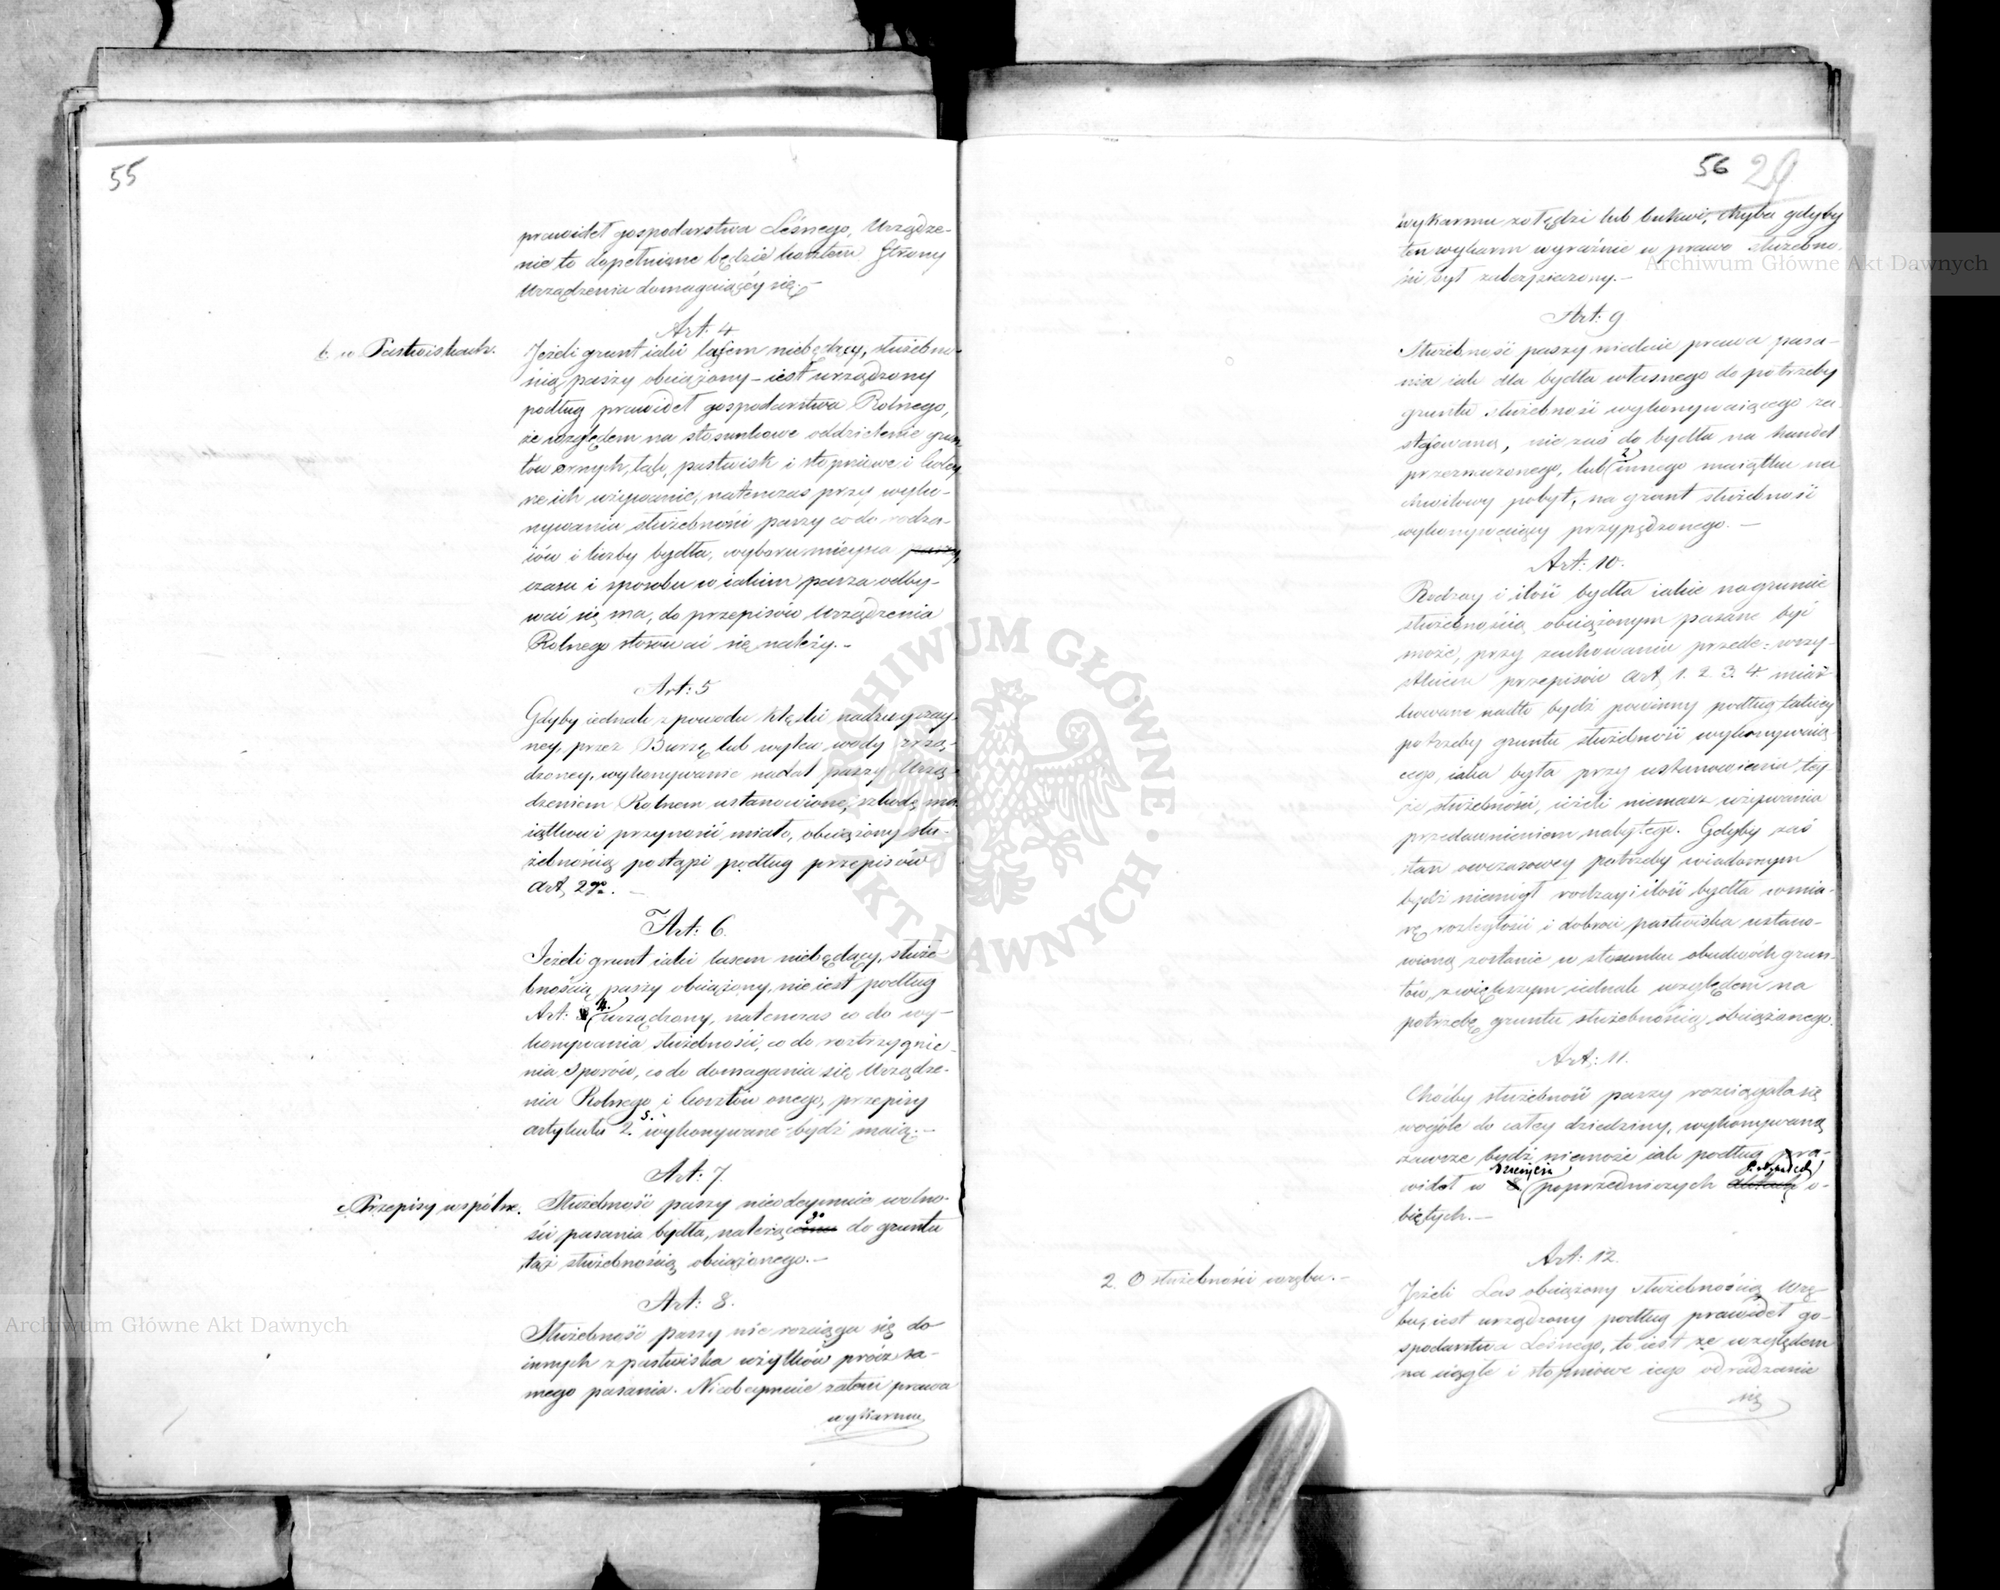 55
prawideł gospodarstwa Leśnego, Urządze-
nie to dopełnione będzie kosztem Strony
Urządzenia domagaiącéy się.-
Art: 4
b. w Pastwiskach.
Jeżeli grunt iaki lasem niebędący, służebno-
ścią paszy obciążony – iest urządzony
podług prawideł gospodarstwa Rolnego,
ze względem na stosunkowe oddzielenie grun-
tów ornych, łąk, pastwisk i stopniowe i koley-
ne ich używanie, natenczas przy wyko-
nywaniu służebności paszy co do rodza-
iów i liczby bydła, wyboru mieysca paszy,
czasu i sposobu w iakim pasza odby-
wać się ma, do przepisów Urządzenia
Rolnego stosować się należy.-
Art: 5
Gdyby iednak z powodu klęski nadzwyczay-
ney, przez Burzę lub wylew wody zrzą-
dzoney, wykonywanie nadal paszy Urzą-
dzeniem Rolnem ustanowione, szkodę ma-
iątkowi przynosić miało, obciążony słu-
żebnością postąpi podług przepisów
Art, 2go. –
Art: 6.
Jeżeli grunt iaki lasem niebędący, służe-
bnością paszy obciążony, nie iest podług
Art: 4. urządzony, natenczas co do wy-
konywania służebności, co do roztrzygnie-
nia Sporów, co do domagania się Urządze-
nia Rolnego i kosztów onego, przepisy
artykułu 2. 3. wykonywane bydź maią.-
Art: 7.
c. Przepisy wspólne.
Służebność paszy nieodeymuie wolno-
ści pasania bydła, należącego do gruntu
tąż służebnością obciążonego.-
Art: 8.
Służebność paszy nie rozciąga się do
innych z pastwiska użytków prócz sa-
mego pasania. Nieobeymuie zatem prawa
wykarmu
56 29
wykarmu żołędzi lub bukwi, chyba gdyby
ten wykarm wyraźnie w prawo służebno-
ści był zabezpieczony.-
Art: 9
Służebność paszy niedaie prawa pasa-
nia iak dla bydła własnego do potrzeby
gruntu służebność wykonywaiącego za-
stosowaną, nie zaś do bydła na handel
przeznaczonego, lub z innego maiątku na
chwilowy pobyt, na grunt służebność
wykonywaiący przypędzonego. –
Art: 10.
Rodzay i ilość bydła iakie na gruncie
służebnością obciążonym pasane być
może, przy zachowaniu przede-wszy-
stkiem przepisów Art, 1. 2. 3. 4. miar-
kowane nadto bydź powinny podług takiey
potrzeby gruntu służebność wykonywaią-
cego, iaka była przy ustanowieniu tey-
że służebności, ieżeli niemasz używania
przedawnieniem nabytego. Gdyby zaś
stan owczasowey potrzeby wiadomym
bydź niemógł rodzay i ilość bydła w mia-
rę rozległości i dobroci pastwiska ustano-
wioną zostanie w stosunku obudwóch grun-
tów, z większym iednak względem na
potrzebę gruntu służebnością obciążonego.
Art: 11.
Choćby służebność paszy rozciągała się
wogóle do całey dziedziny, wykonywaną
zawsze bydź niemoże iak podług pra-
wideł w dziesięciu poprzedniczych Artykułach o-
biętych.-
Art: 12.
2. O służebności wrębu.-
Jeżeli Las obciążony służebnością Wrę-
bu, iest urządzony podług prawideł go-
spodarstwa Leśnego, to iest ze względem
na ciągłe i stopniowe iego odradzanie
się
ARCHIWUM GŁÓWNE AKT DAWNYCH
Archiwum Główne Akt Dawnych
Archiwum Główne Akt Dawnych